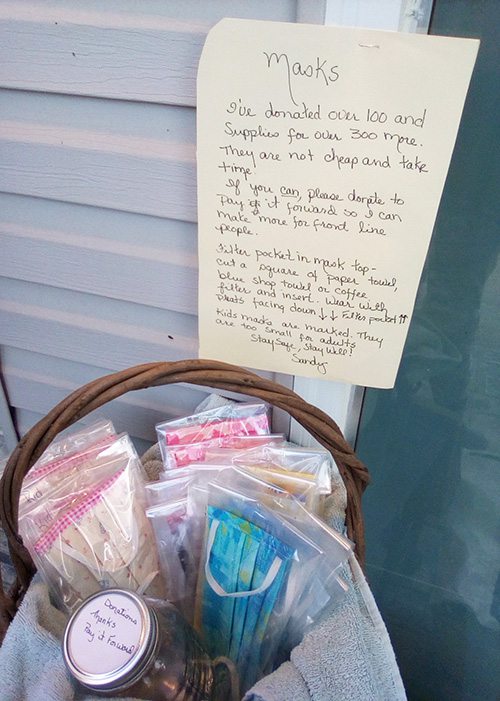 Masks
I've donated over 100 and
Supplies for over 300 more.
They are not cheap and take
time!
If you can, please donate to
pay it forward so I can
make more for front line
people.
Filter pocket in mask top -
cut a square of paper towel,
blue shop towel or coffee
filter and insert. Wear with
pleats facing down ↓↓ Filter pocket ↑↑
Kids masks are marked. They
are too small for adults
Stay Safe, Stay Well!
Sandy
Donations
Thanks
Pay it Forward